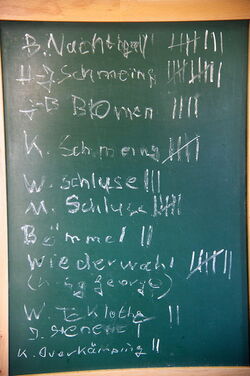 B. Nachtigall |||| |||
H-J. Schmeing |||| ||||
J-B Blömen ||||
K. Schmeing ||||
W. Schluse |||
M. Schluse ||||
Bömmel ||
Wiederwahl |||| ||
W. Teklothe ||
K. Overkämping ||